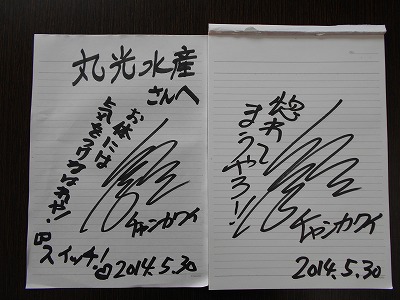 丸光水産
さんへ
お体には
気をつけなはれや!
Bスイッチ!
チャンカワイ
2014.5.30
惚れて
まうやろー!
チャンカワイ
2014.5.30